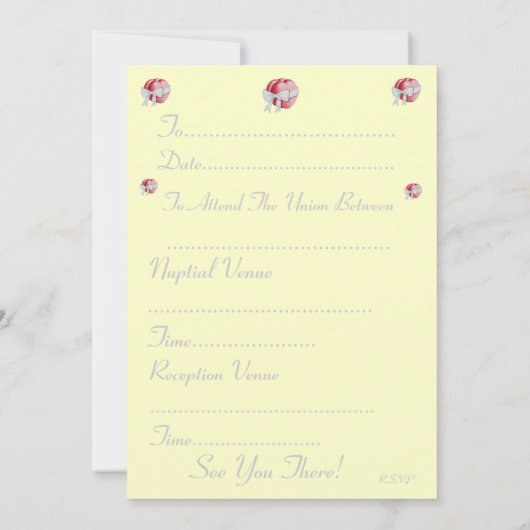 To...................................
Date................................
To Attend The Union Between
.....................................
Nuptial Venue
.....................................
Time.....................
Reception Venue
.....................................
Time.....................
See You There!
R.S.V.P.